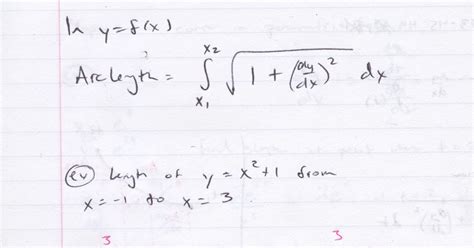 In y=f(x)
Arc Length = ∫ x₁ x₂ √(1 + (dy/dx)²) dx
(ex) length of y = x²+1 from
x=-1 to x = 3.
3 3